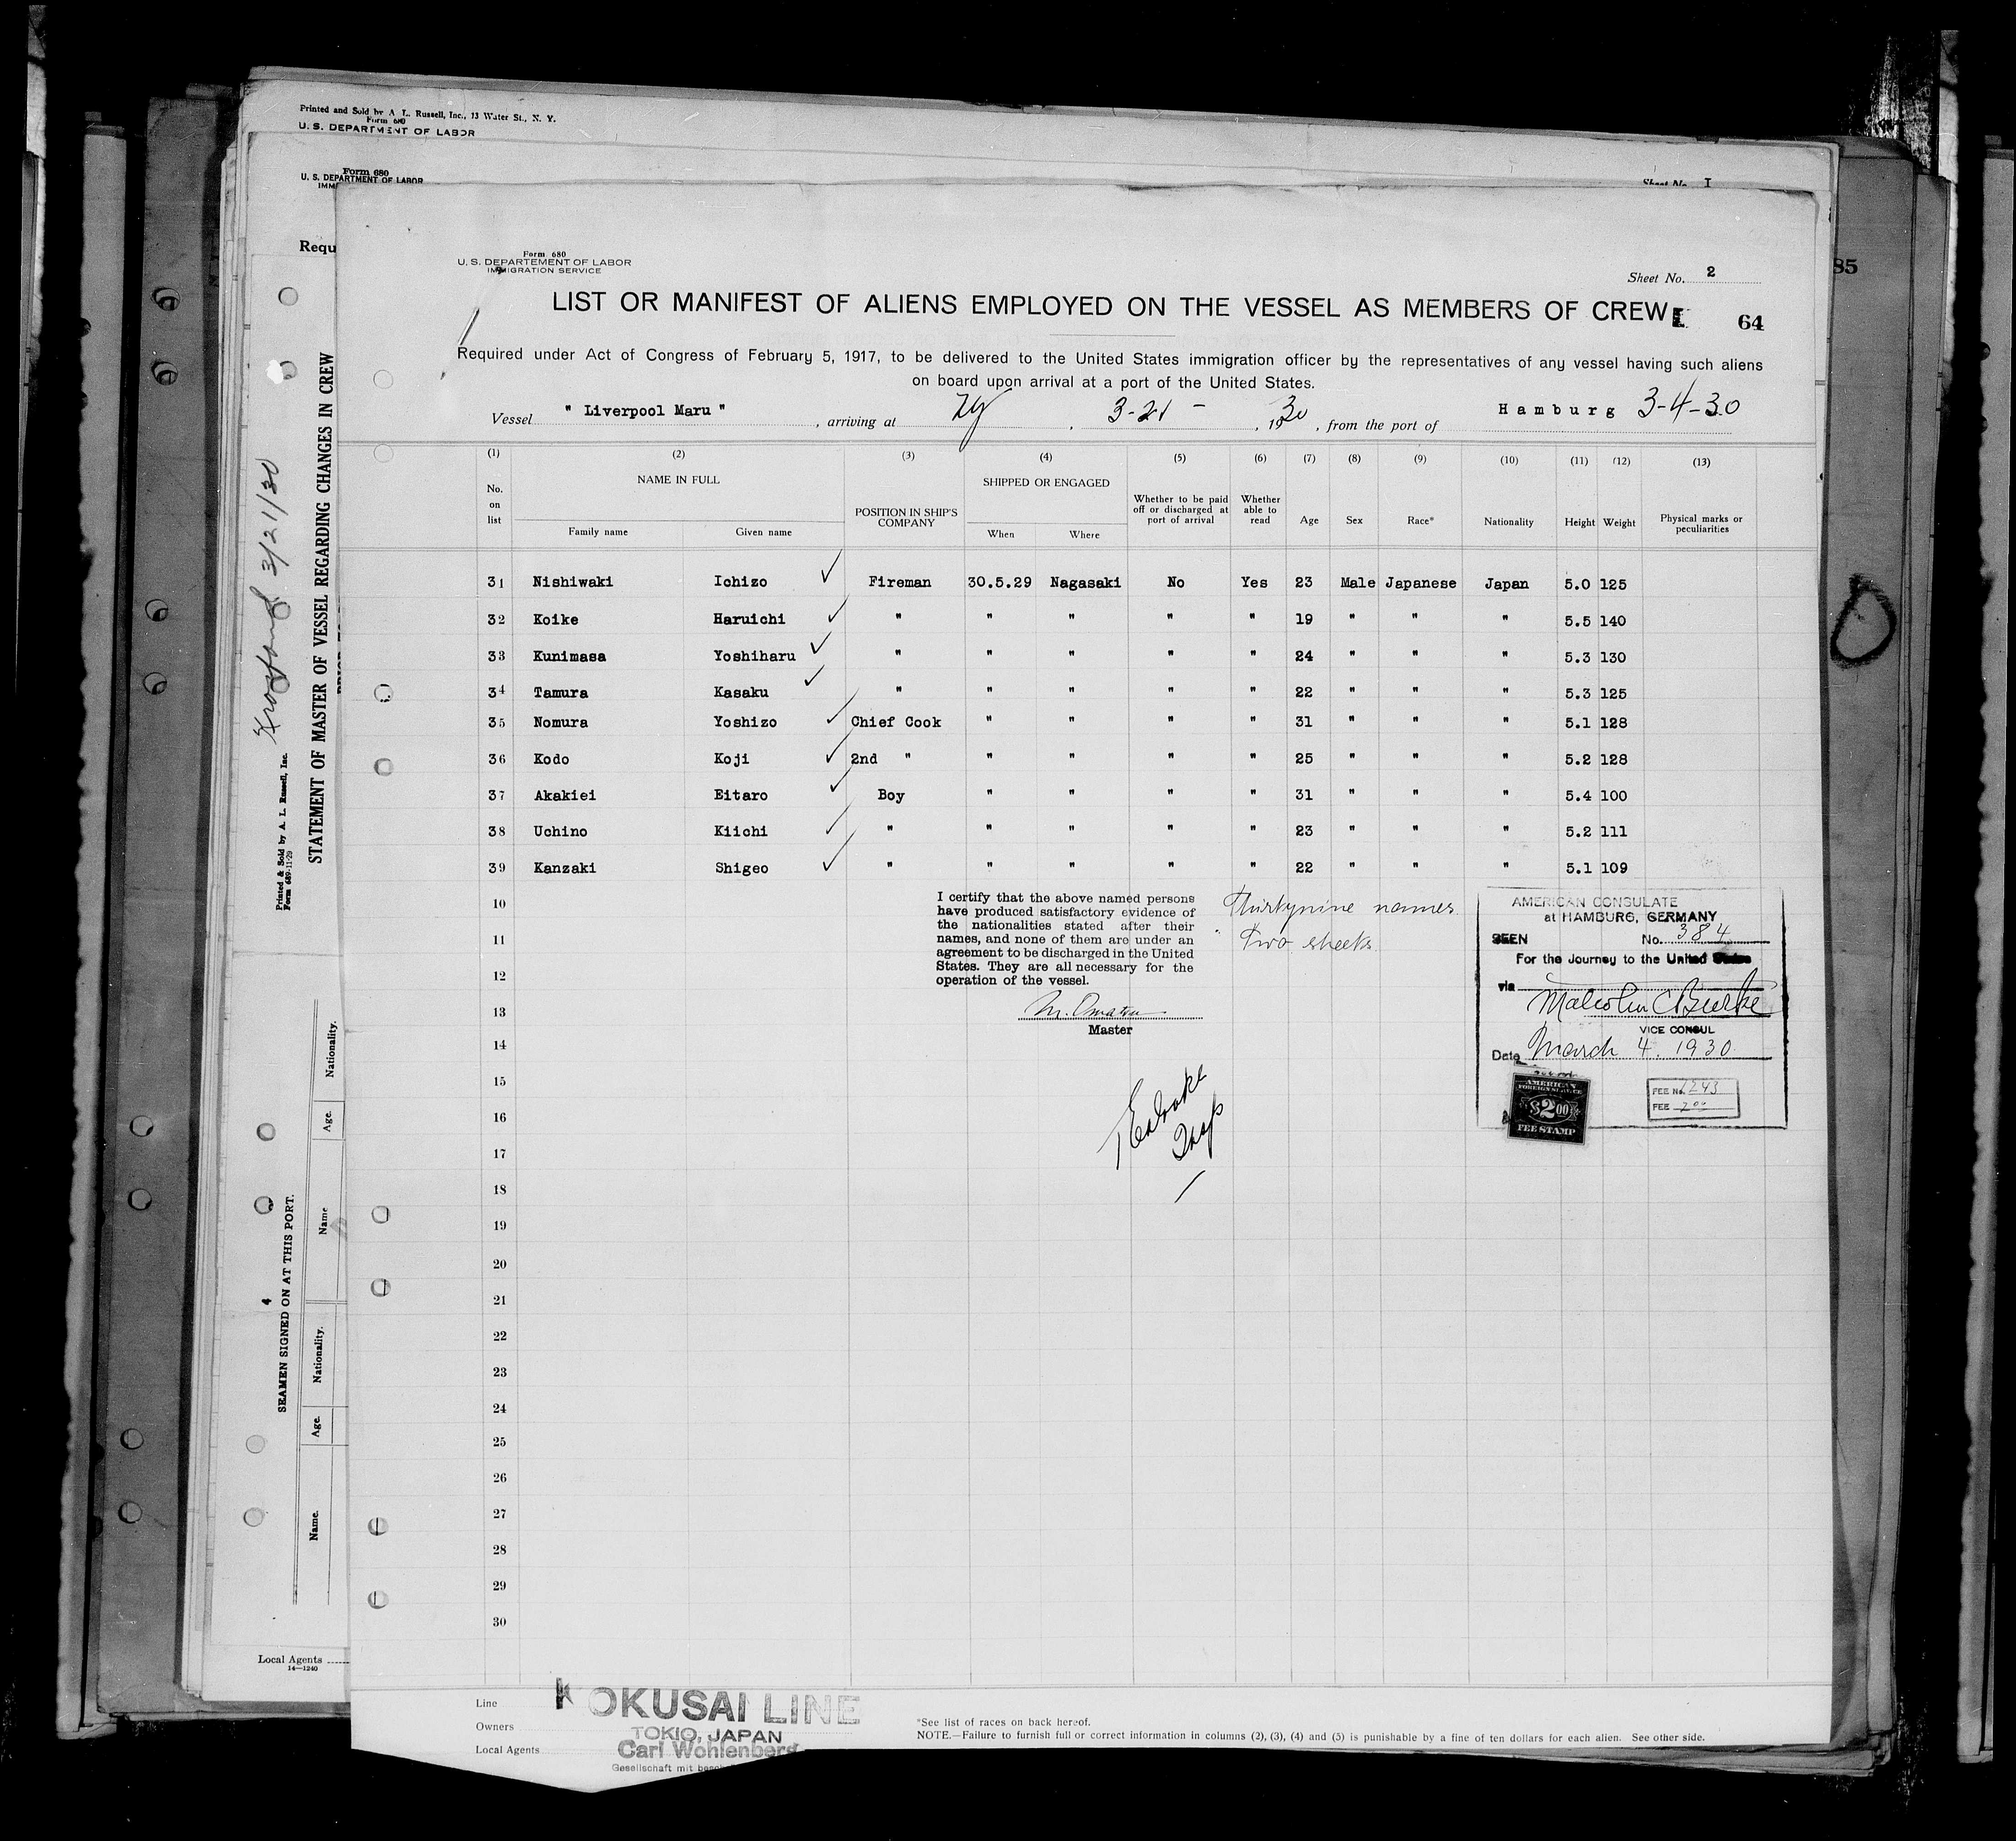 Printed and Sold by A L. Russell, Inc., 13 Water St., N. Y.
Form 680
U. S. DEPARTMENT OF LABOR
Form 680
U. S. DEPARTMENT OF LABOR
IMM
Sheet No. I
Requ
85
STATEMENT OF MASTER OF VESSEL REGARDING CHANGES IN CREW
3/21/30
Printed & Sold by A. L. Russell, Inc.
Form 689-11-29
Nationality.
Age.
Name
4
SEAMEN SIGNED ON AT THIS PORT.
Nationality.
Age.
Name.
Local Agents
14—1240
Form 680
U. S. DEPARTEMENT OF LABOR
IMMIGRATION SERVICE
Sheet No. 2
LIST OR MANIFEST OF ALIENS EMPLOYED ON THE VESSEL AS MEMBERS OF CREW
64
Required under Act of Congress of February 5, 1917, to be delivered to the United States immigration officer by the representatives of any vessel having such aliens
on board upon arrival at a port of the United States.
Vessel " Liverpool Maru " , arriving at Ny , 3-21- , 1930 , from the port of Hamburg 3-4-30
(1) (2) (3) (4) (5) (6) (7) (8) (9) (10) (11) (12) (13)
No. on list NAME IN FULL Family name Given name POSITION IN SHIP'S COMPANY SHIPPED OR ENGAGED When Where Whether to be paid off or discharged at port of arrival Whether able to read Age Sex Race* Nationality Height Weight Physical marks or peculiarities
31 Nishiwaki Ichizo Fireman 30.5.29 Nagasaki No Yes 23 Male Japanese Japan 5.0 125
32 Koike Haruichi " " " " " 19 " " " 5.5 140
33 Kunimasa Yoshiharu " " " " " 24 " " " 5.3 130
34 Tamura Kasaku " " " " " 22 " " " 5.3 125
35 Nomura Yoshizo Chief Cook " " " " 31 " " " 5.1 128
36 Kodo Koji 2nd " " " " " 25 " " " 5.2 128
37 Akakiei Eitaro Boy " " " " 31 " " " 5.4 100
38 Uchino Kiichi " " " " " 23 " " " 5.2 111
39 Kanzaki Shigeo " " " " " 22 " " " 5.1 109
I certify that the above named persons
have produced satisfactory evidence of
the nationalities stated after their
names, and none of them are under an
agreement to be discharged in the United
States. They are all necessary for the
operation of the vessel.
M. Omatsu
Master
Thirtynine names
Two sheets
AMERICAN CONSULATE
at HAMBURG, GERMANY
SEEN No. 384
For the Journey to the United States
via
Malcolm C Burke
VICE CONSUL
Date March 4. 1930
AMERICAN
FOREIGN SERVICE
$2.00
FEE STAMP
FEE No. 1243
FEE 2.00
10
11
12
13
14
15
16
17
18
19
20
21
22
23
24
25
26
27
28
29
30
Line KOKUSAI LINE
Owners TOKIO, JAPAN
Local Agents Carl Wohlenberg
Gesellschaft mit besch
*See list of races on back hereof.
NOTE.—Failure to furnish full or correct information in columns (2), (3), (4) and (5) is punishable by a fine of ten dollars for each alien. See other side.